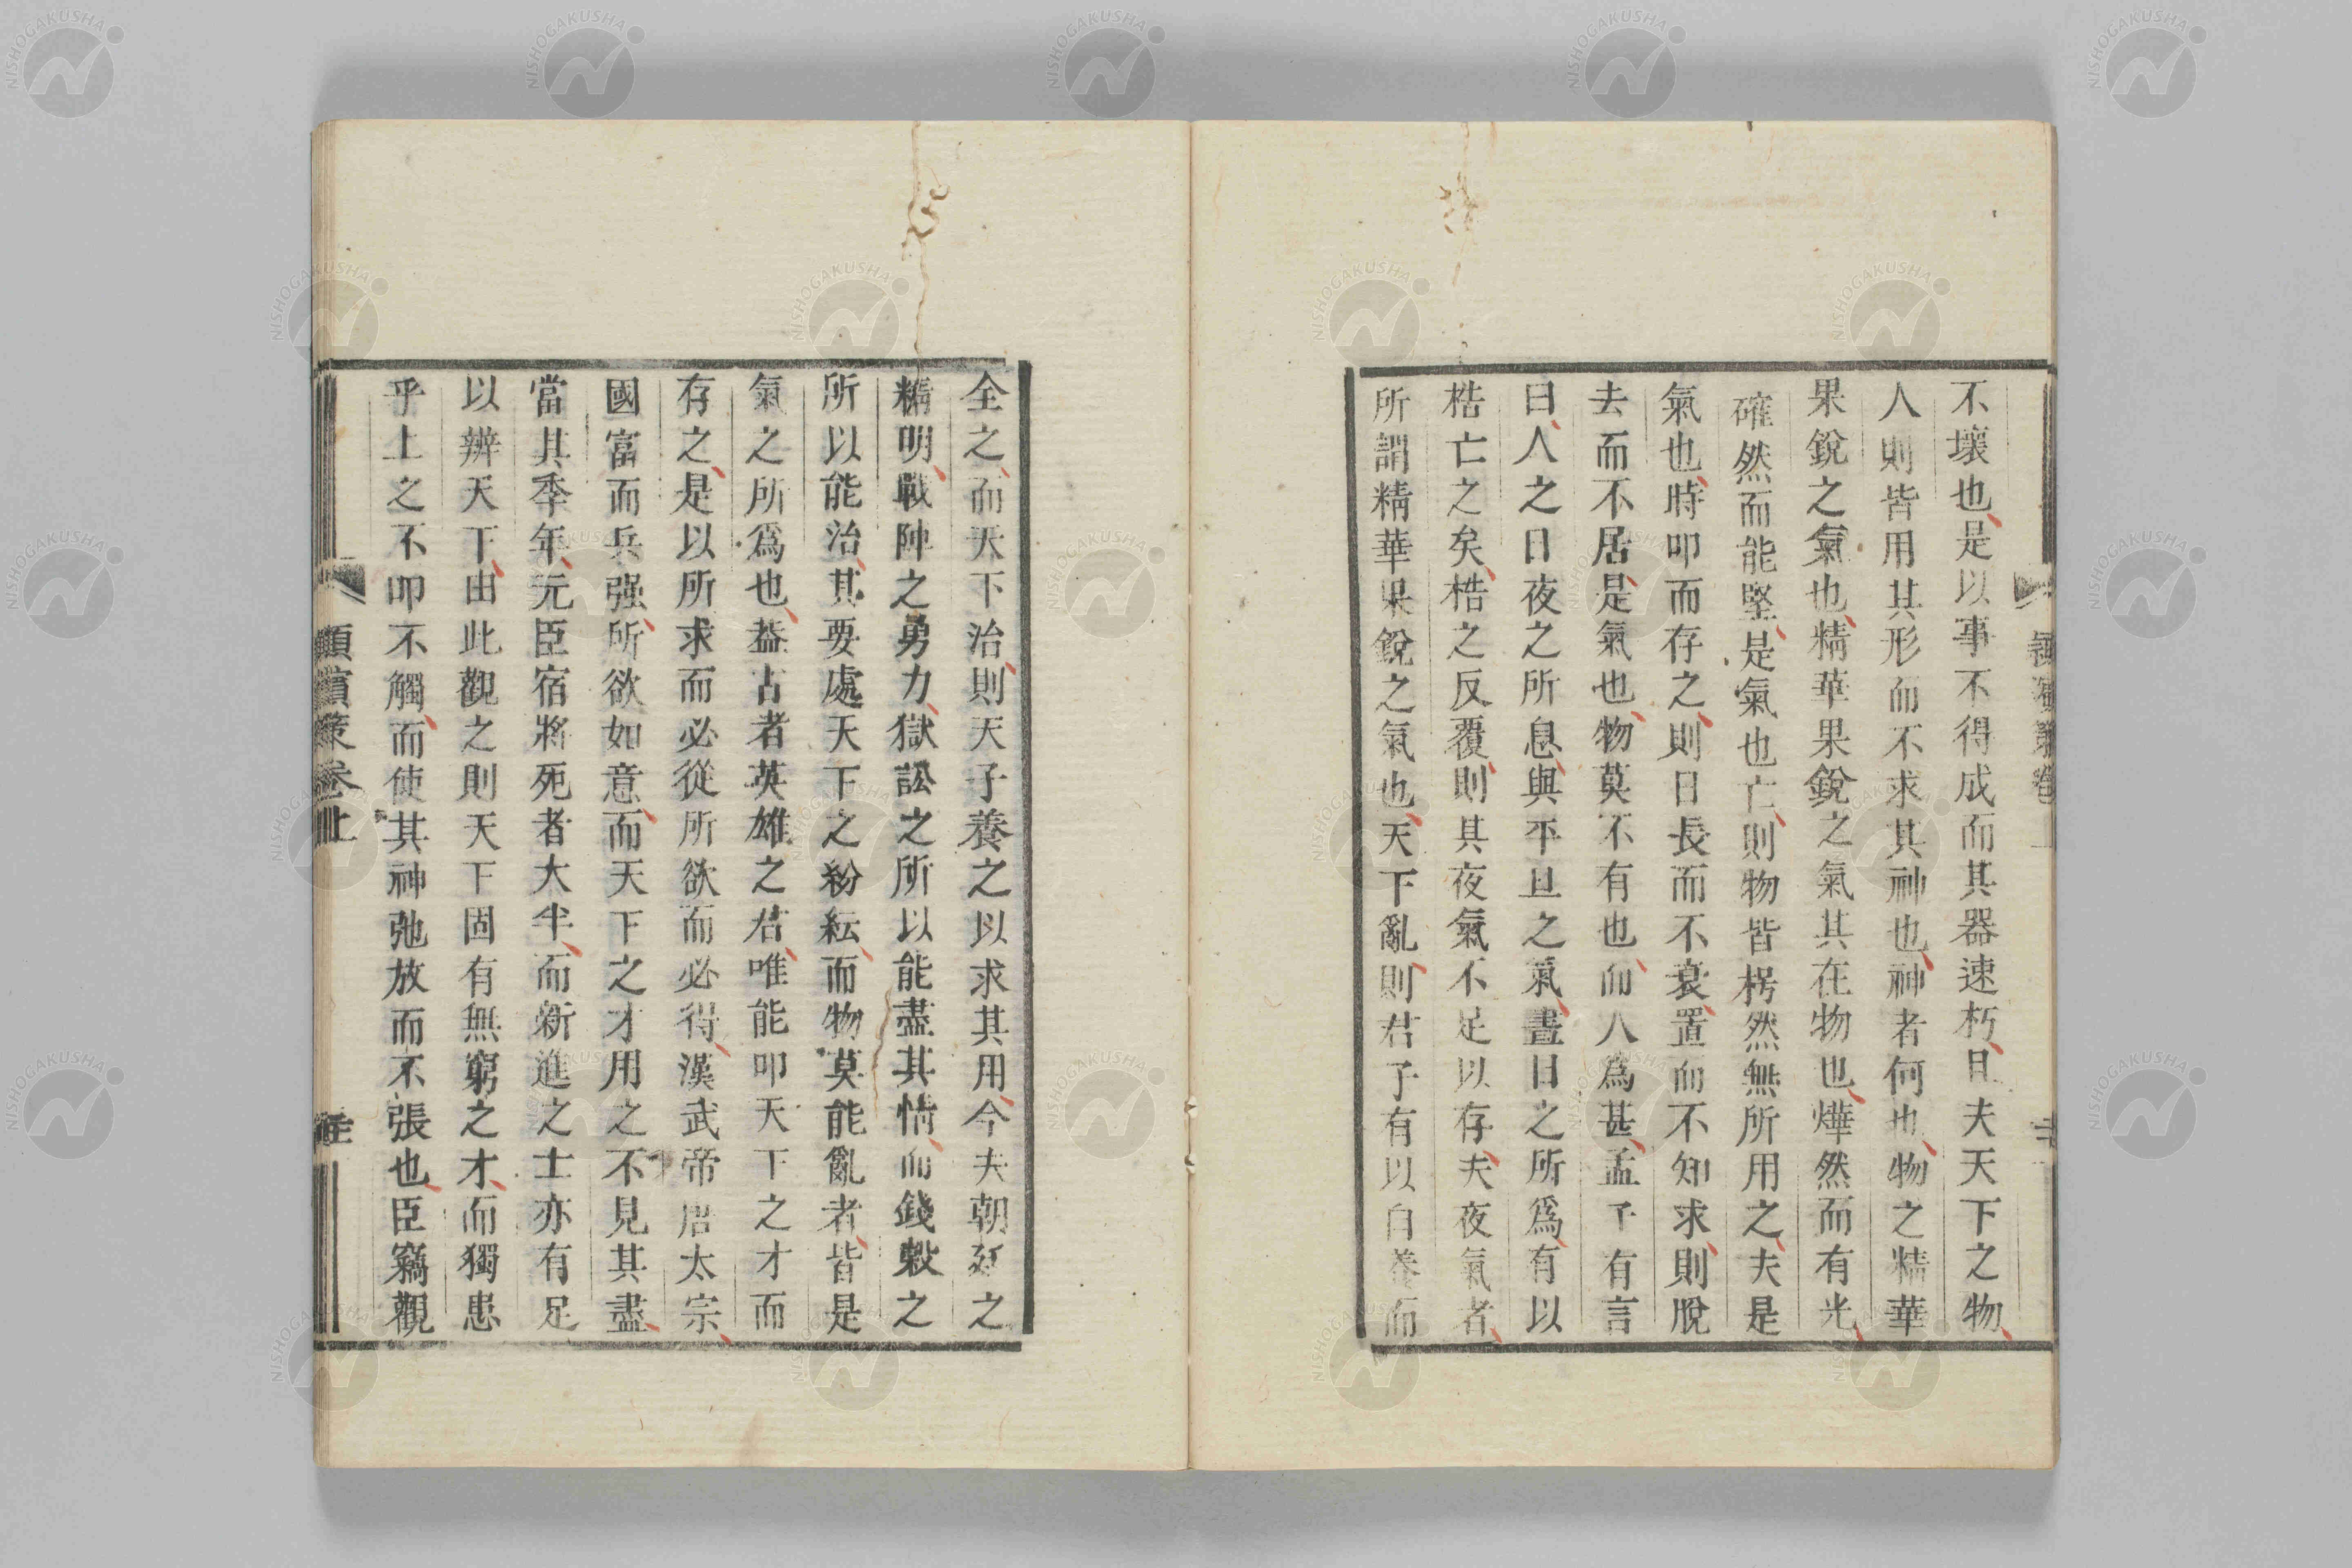 不壞也是以事不得成而其器速朽且夫天下之物
人則皆用其形而不求其神也神者何也物之精華
果銳之氣也精華果銳之氣其在物也燁然而有光
確然而能堅是氣也亡則物皆枵然無所用之夫是
氣也時叩而存之則日長而不衰置而不知求則脫
去而不居是氣也物莫不有也而人爲甚孟子有言
曰人之日夜之所息與平旦之氣晝日之所爲有以
梏亡之矣梏之反覆則其夜氣不足以存夫夜氣者
所謂精華果銳之氣也天下亂則君子有以自養而
全之而天下治則天子養之以求其用今夫朝廷之
精明戰陣之勇力獄訟之所以能盡其情而錢穀之
所以能治其要處天下之紛紜而物莫能亂者皆是
氣之所爲也葢古者英雄之君唯能叩天下之才而
存之是以所求而必從所欲而必得漢武帝唐太宗
國富而兵强所欲如意而天下之才用之不見其盡
當其季年元臣宿將死者大半而新進之士亦有足
以辨天下由此觀之則天下固有無窮之才而獨患
乎上之不叩不觸而使其神弛放而不張也臣竊觀
潁濱策卷上
NISHOGAKUSHA